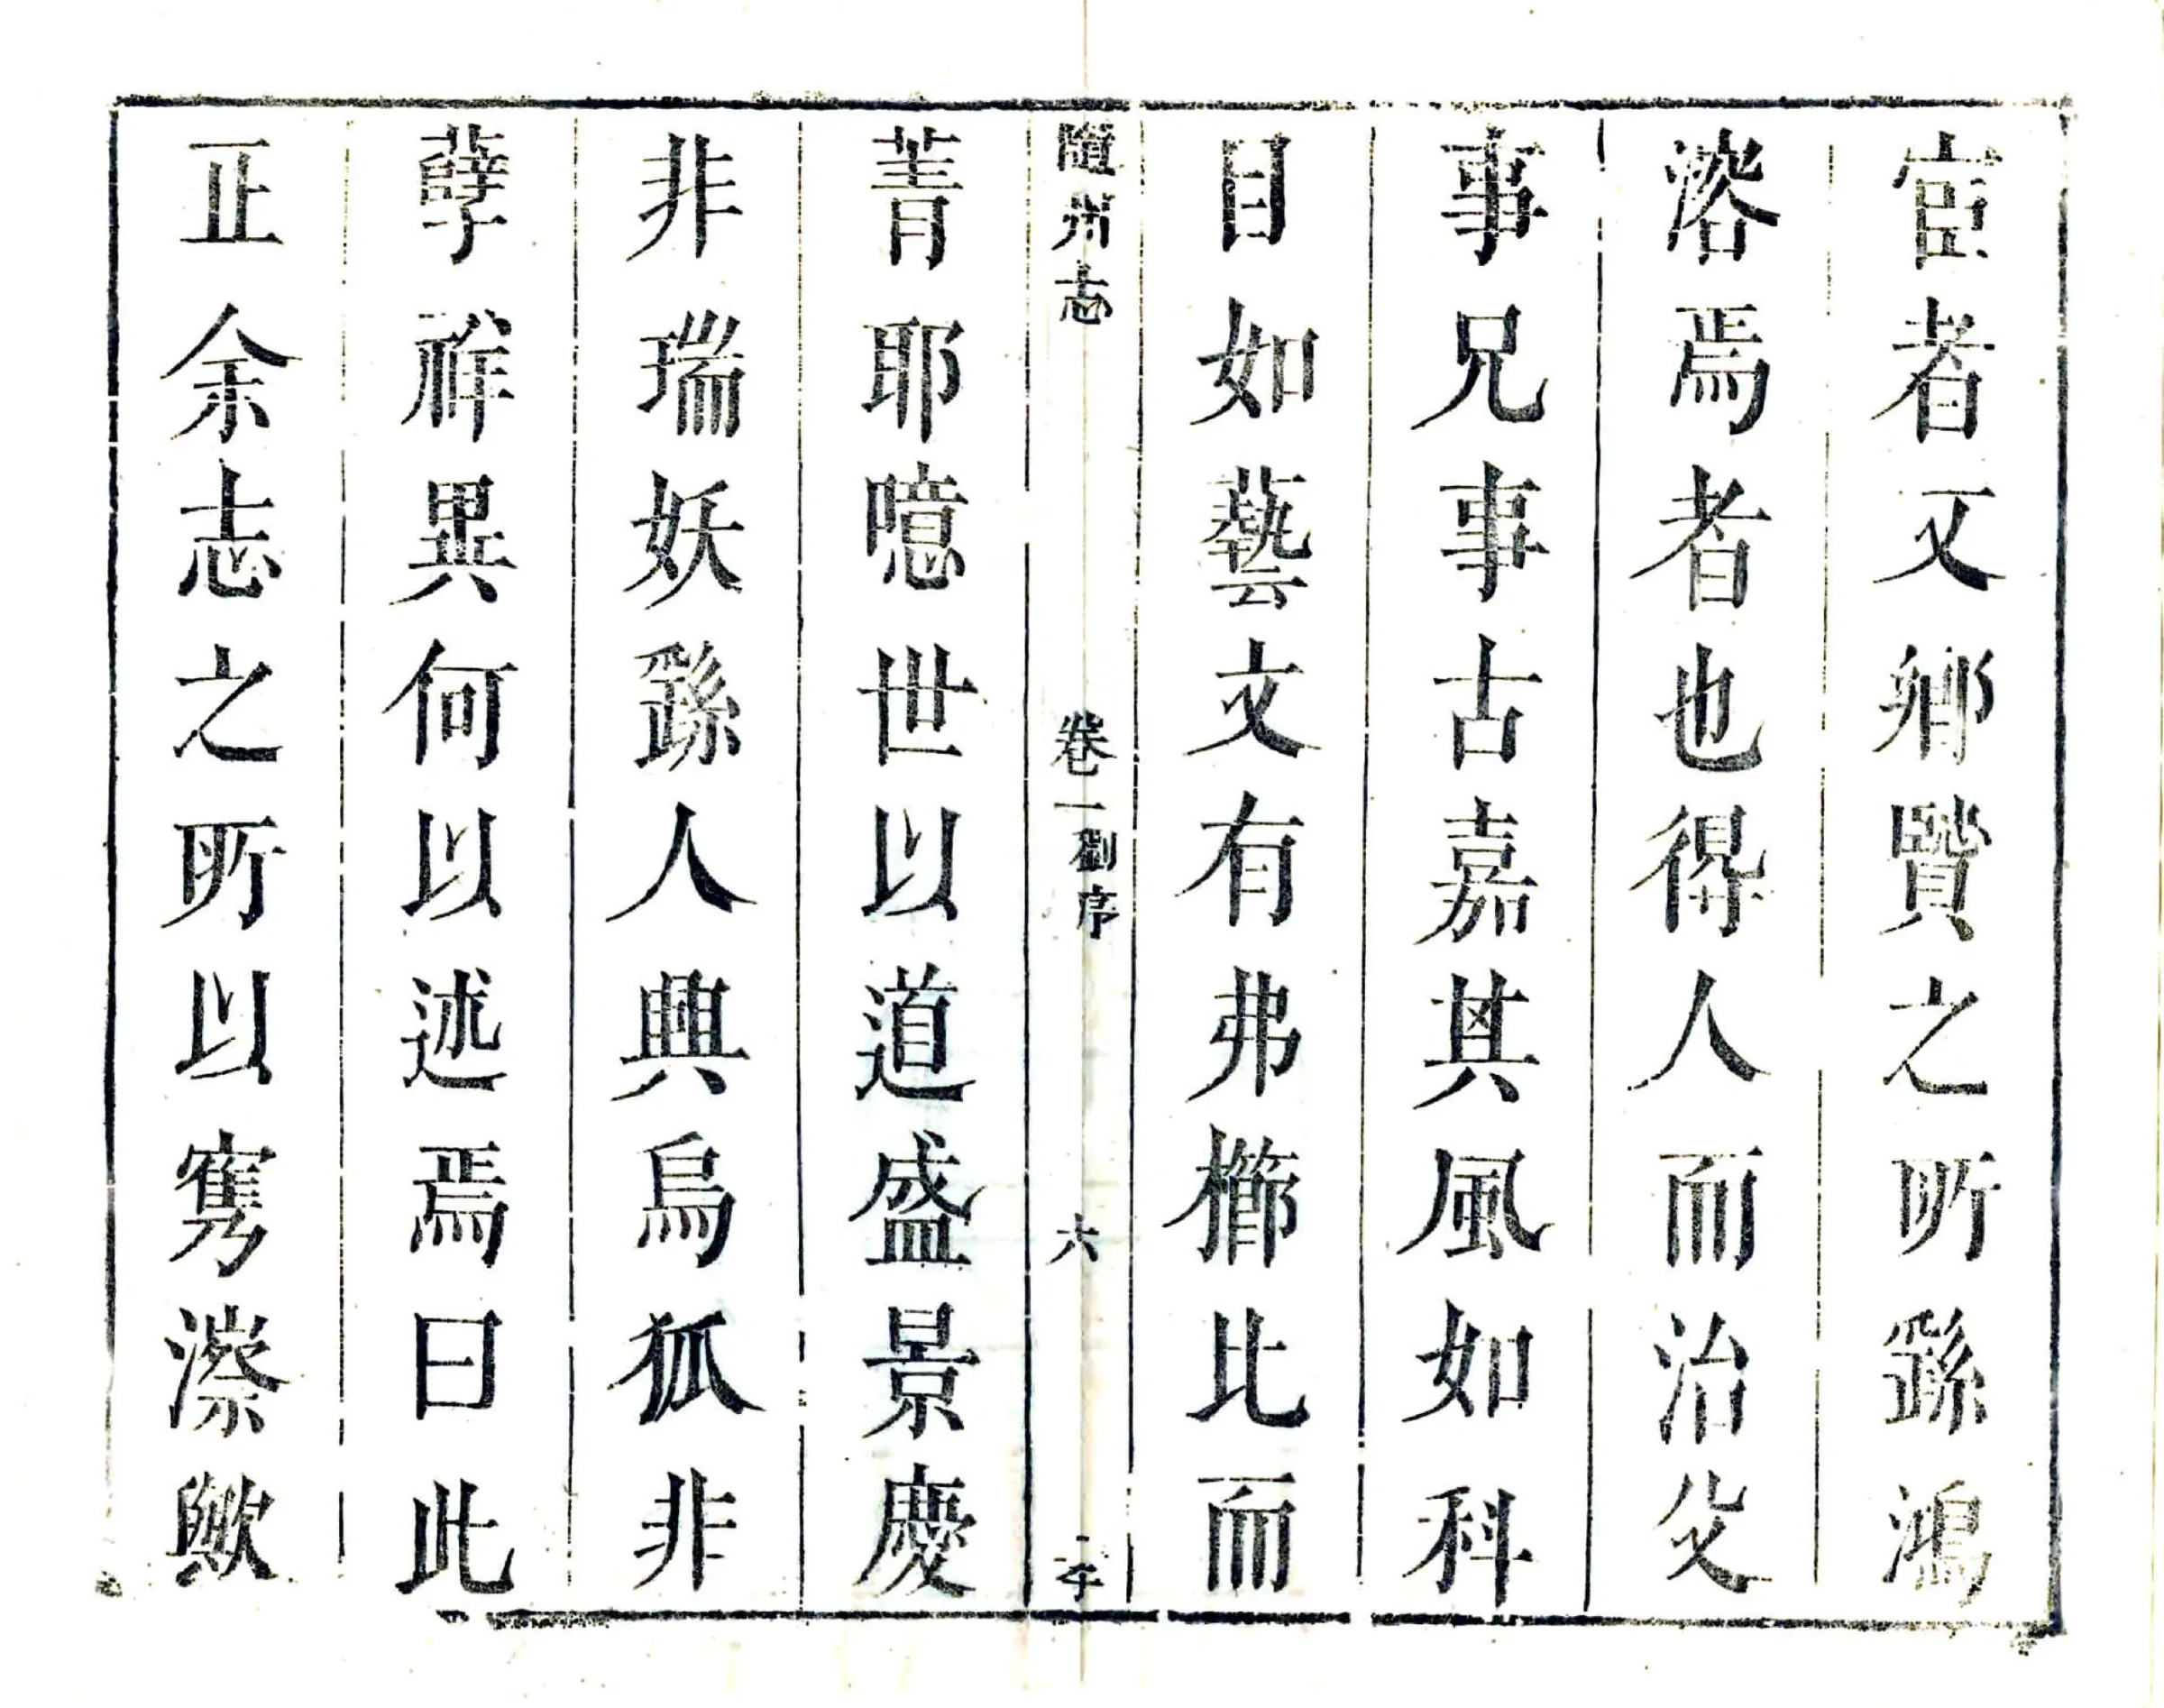 宦者又鄉賢之所繇鴻
濬焉者也得人而治父
事兄事古嘉其風如科
目如藝文有弗櫛比而
隨州志 卷一劉序 六
菁耶噫世以道盛景慶
非瑞妖繇人興烏狐非
孽祥異何以述焉曰此
正余志之所以寓漈歟